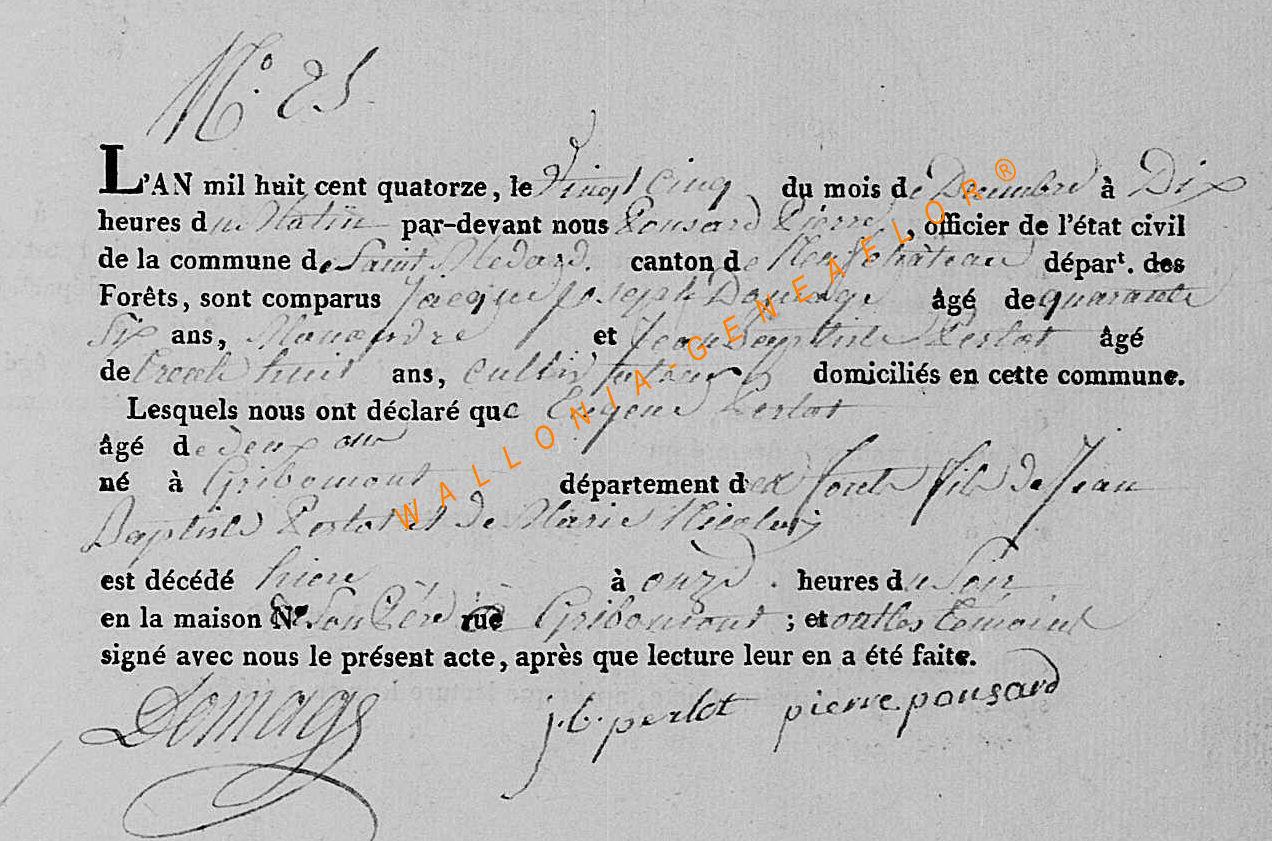 N.° 25
L'AN mil huit cent quatorze, le Vingt Cinq du mois de Decembre à Dix
heures du Matin par-devant nous Ponsard Pierre, officier de l'état civil
de la commune de Saint Medard. canton de Neufchâteau départ. des
Forêts, sont comparus Jacque joseph Domage âgé de quarante
Six ans, Manoeuvre et Jean Baptiste Perlot âgé
de trente huit ans, Cultivateur domiciliés en cette commune.
Lesquels nous ont déclaré que Eugene Perlot
âgé de deux ans
né à Gribomont département des forets fils de Jean
Baptiste Perlot et de Marie
est décédé hiere à onze heures du Soir
en la maison de Son Père à Gribomont ; et ont les temoins
signé avec nous le présent acte, après que lecture leur en a été faite.
Domage j.b. perlot pierre ponsard
WALLONIA-GENEAFLOR®